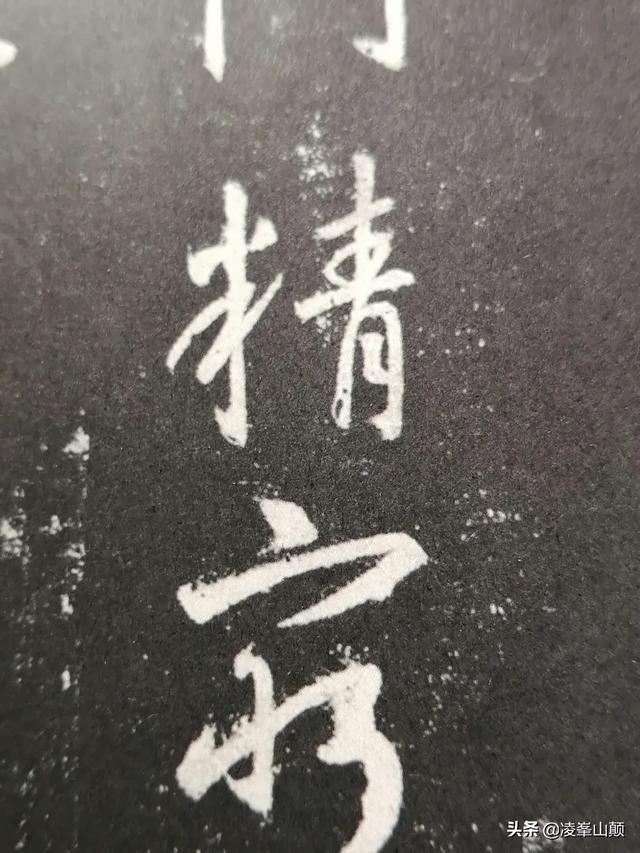 精
窮
头条 @凌峯山颠